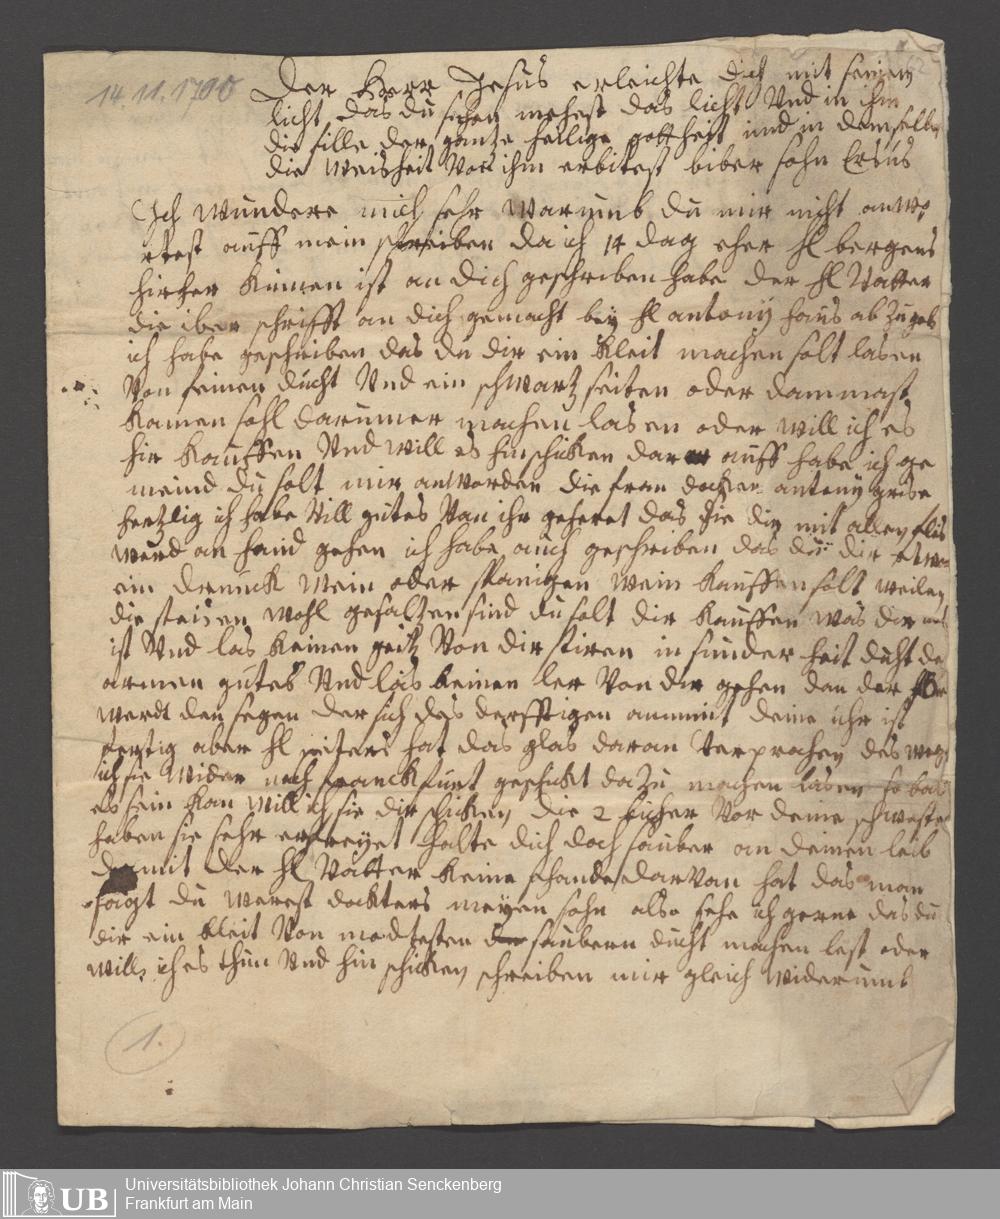 14.11.1700
Der Herr Jesus erleichte dich mit seinem
licht das du sehen mehest das licht Und in ihm
die fille der gantze heilige gottheit und in demselben
die Weisheit Von ihm erbitest liber sohn
Ich Wundere mich sehr Warumb du mir nicht antwo
rtest auff mein schreiben da ich 14 dag eher hl bergens
hirher kumen ist an dich geschriben habe der hl Vatter
die iber schrifft an dich gemacht bey hl antony haus ab zu geb
ich habe geschriben das du dir ein kleit machen solt lasen
Von feinen ducht Und ein schwartz seiten oder dammast
kamensohl darunner machen lasen oder will ich es
hir kauffen Und will es hin schicken dar auff habe ich ge
meind du solt mir anworden die frau docter antony grise
hertzlig ich habe Vill gutes Von ihr geheret das sie dir mit allen fleis
Werd an hand gehen ich habe auch geschriben das du dir etwan
ein drunck Wein oder spanigen Wein kauffen solt weilen
die speisen wohl gesaltzen sind du solt dir kauffen was dir nus
ist Und las keinen geitz Von dir spiren in sunder heit duht de
armen gutes Und las keinen ler Von dir gehen dan der Her
Werdt den segen der sich des derfftigen annimt deine uhr ist
fertig aber hl peters hat das glas daran Verprochen des weg
ich sie Wider nach franckfurt geschickt da zu machen lasen so bal
es sein kan Will ich sie dir schicken die 2 bicher Vor deine schwester
haben sie sehr erfreyet halte dich doch sauber an deinen leib
damit der hl Vatter keine schande darVan hat das man
sagt du Werest dockters meyen sohn also sehe ich gerne das du
dir ein kleit Von modesten saubern ducht machen lest oder
Will ich es thun Und hin schicken schreiben mir gleich Widerumb
1.
UB
Universitätsbibliothek Johann Christian Senckenberg
Frankfurt am Main